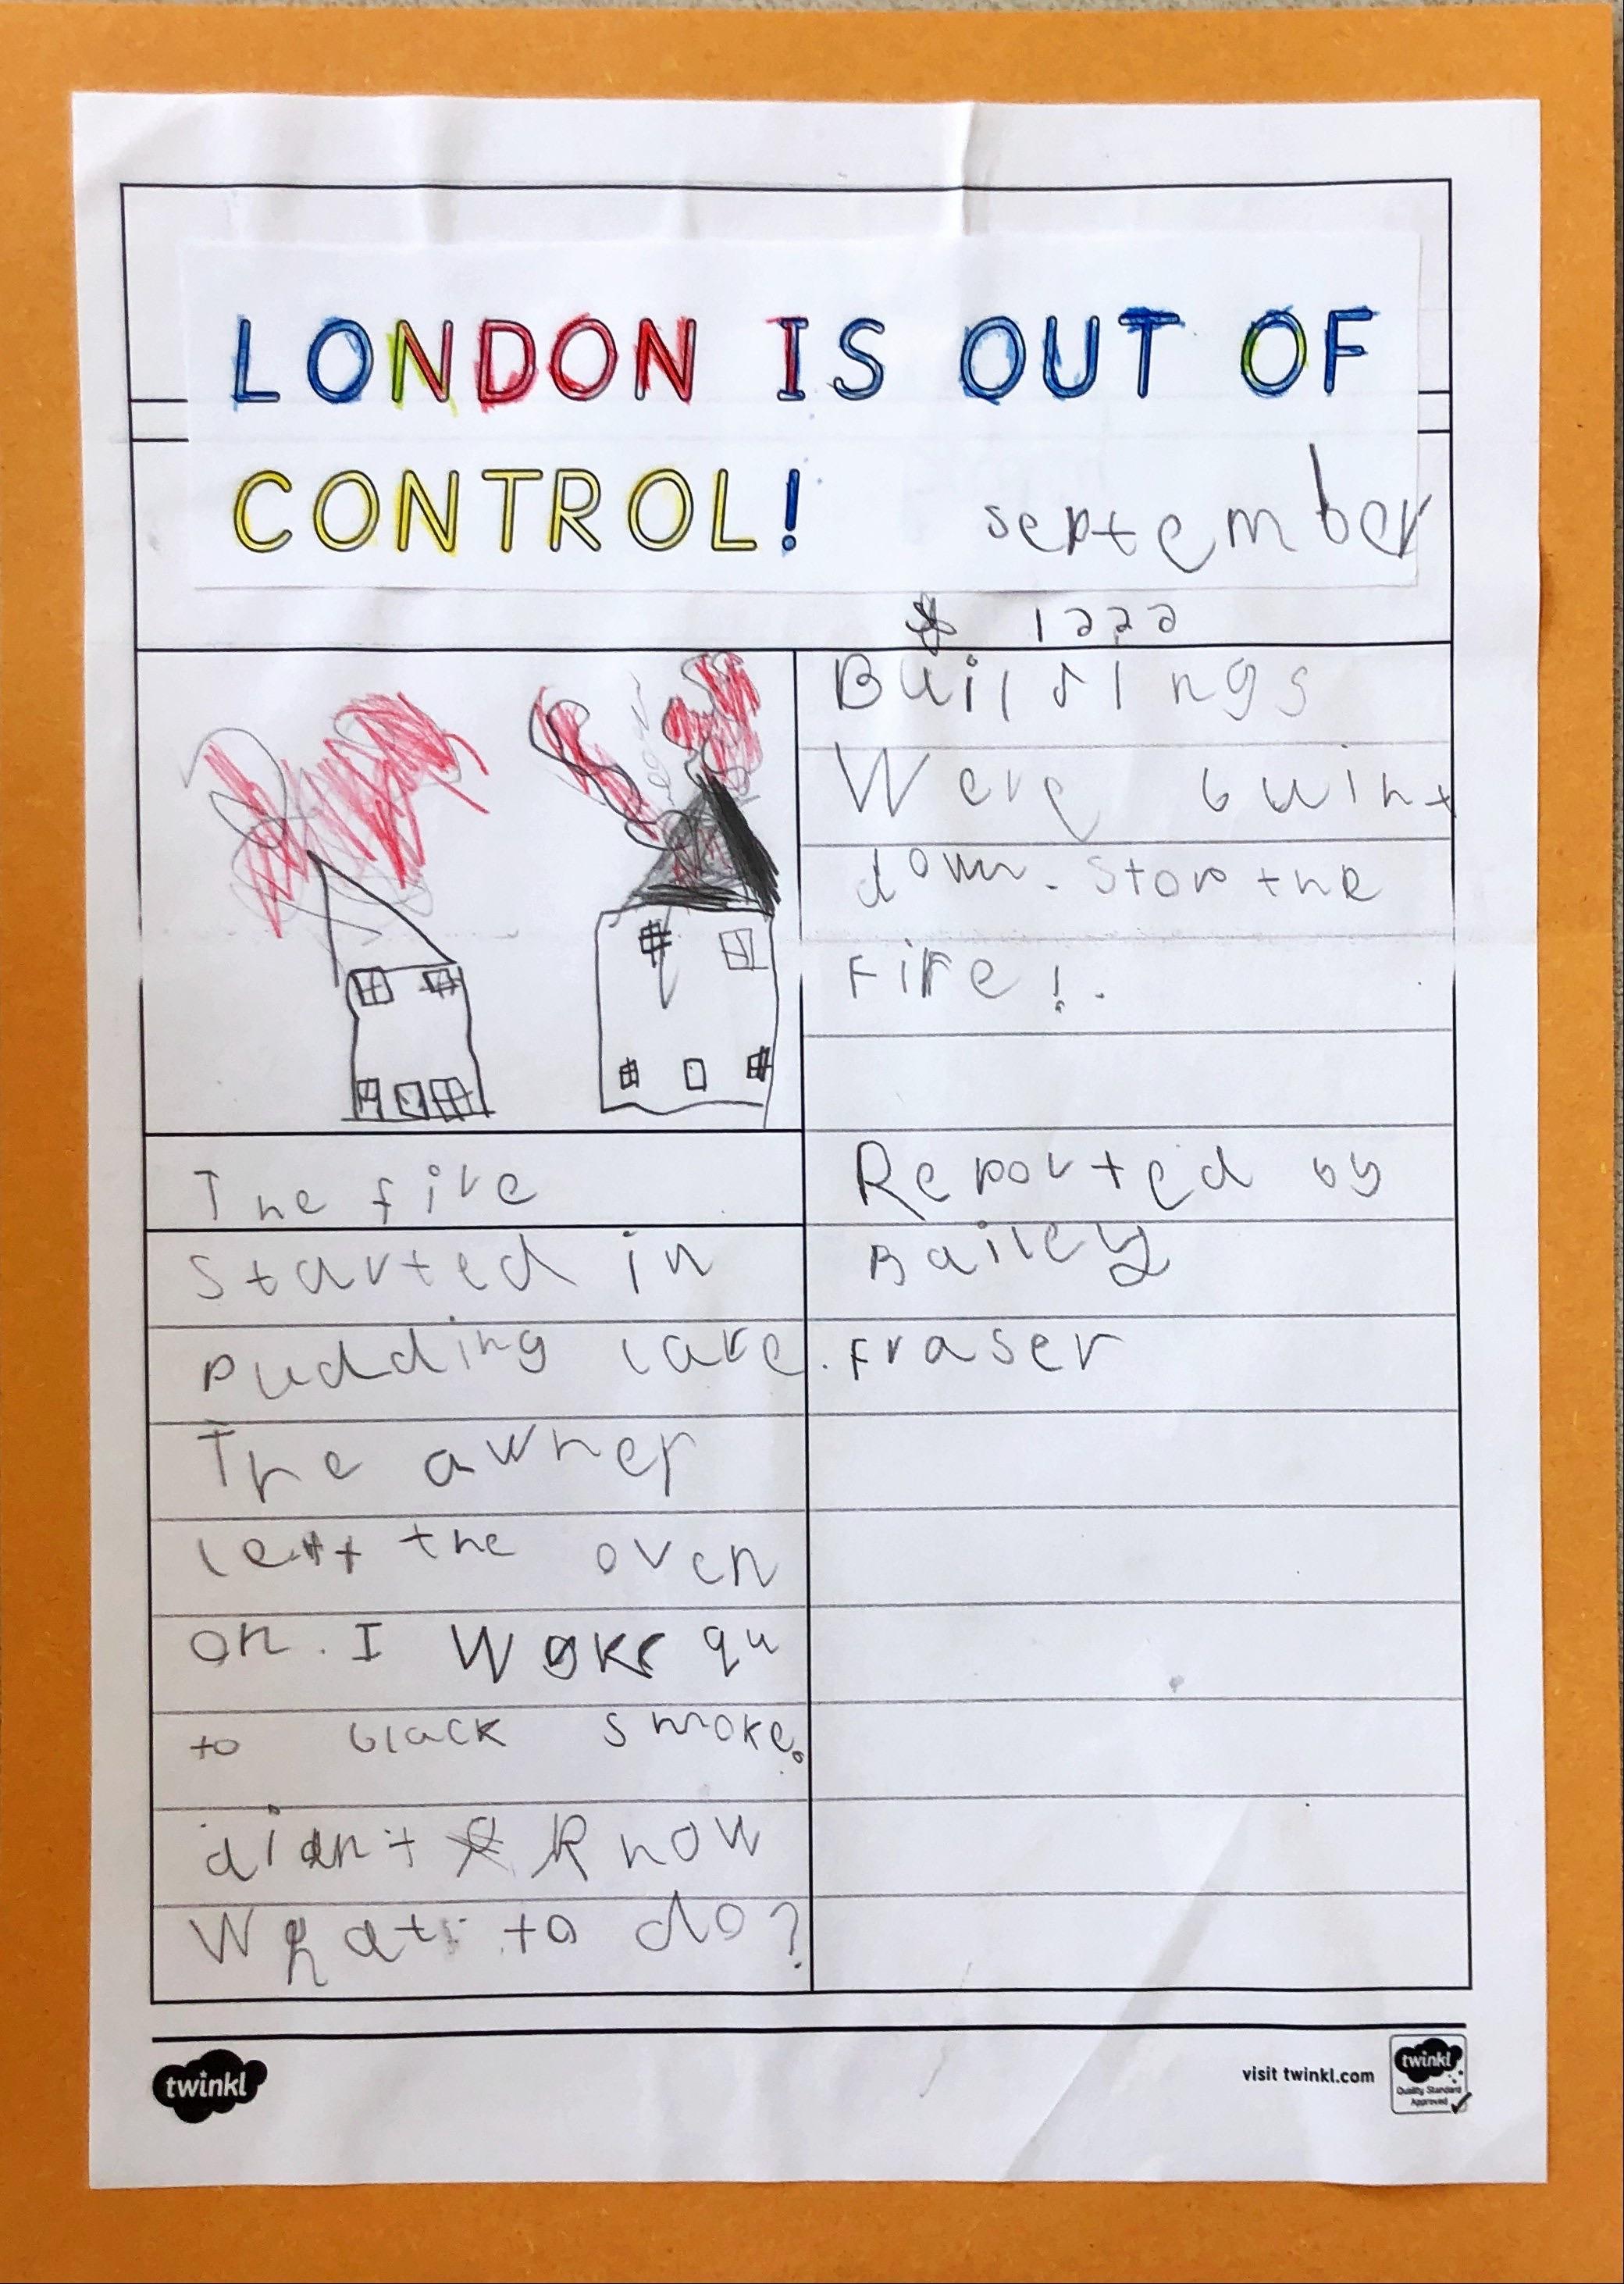 LONDON IS OUT OF
CONTROL!
september
1222
The fire
started in
pudding lare.
The owner
left the oven
on. I woke qu
to black smoke.
didnt know
What to do?
Buildings
Were buint
down. stop the
Fire!.
Reported by
Bailey
Fraser
twinkl
visit twinkl.com
twinkl
Quality Standard
Approved